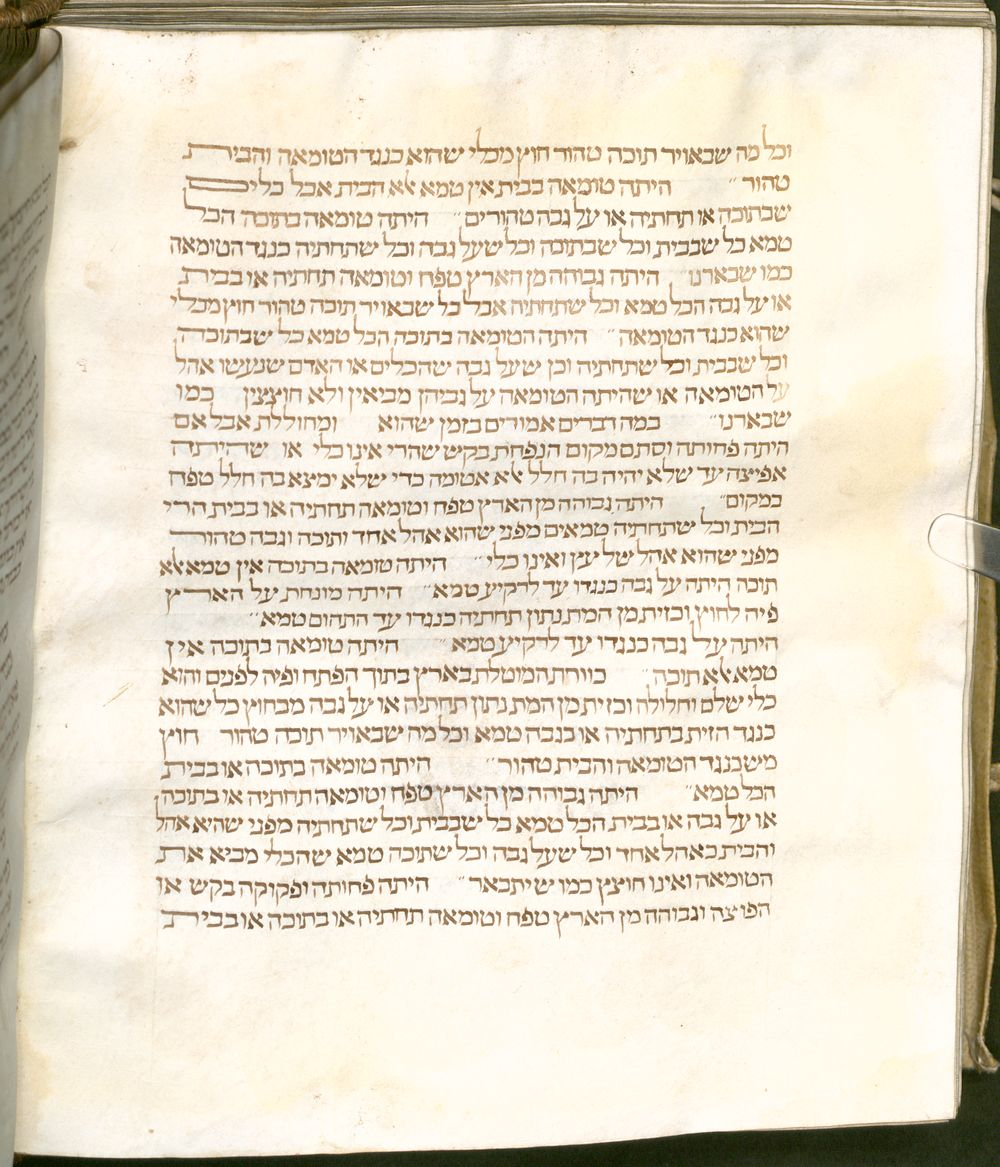 וכל מה שבאויר תוכה טהור חוץ מכלי שהוא כנגד הטומאה והבית
טהור ״ היתה טומאה בבית אין טמא אלא הבית אבל כלים
שבתוכה או תחתיה או על גבה טהורים ״ היתה טומאה בתוכה הכל
טמא כל שבבית וכל שבתוכה וכל שעל גבה וכל שתחתיה כנגד הטומאה
כמו שבארנו ״ היתה גבוהה מן הארץ טפח וטומאה תחתיה או בבית
או על גבה הכל טמא וכל שתחתיה אבל כל שבאויר תוכה טהור חוץ מכלי
שהוא כנגד הטומאה ״ היתה הטומאה בתוכה הכל טמא כל שבתוכה
וכל שבבית וכל שתחתיה וכן שעל גבה שהכלים או האדם שנעשו אהל
על הטומאה או שהיתה הטומאה על גביהן מביאין ולא חוצצין כמו
שבארנו ״ במה דברים אמורים בזמן שהוא ומחוללת אבל אם
היתה פחותה וסתם מקום הנפחת בקש שהרי אינו כלי או שהיתה
אפיצה עד שלא יהיה בה חלל אלא אטומה כדי שלא ימצא בה חלל טפח
במקום ״ היתה גבוהה מן הארץ טפח וטומאה תחתיה או בבית הרי
הבית וכל שתחתיה טמאים מפני שהוא אהל אחד ותוכה וגבה טהור
מפני שהוא אהל של עץ ואינו כלי ״ היתה טומאה בתוכה אין טמא אלא
תוכה היתה על גבה כנגדו עד לרקיע טמא ״ היתה מונחת על הארץ
פיה לחוץ וכזית מן המת נתון תחתיה כנגדו עד התהום טמא ״
היתה על גבה כנגדו עד לרקיע טמא ״ היתה טומאה בתוכה אין
טמא אלא תוכה ״ כוורת המוטלת בארץ בתוך הפתח ופיה לפנים והוא
כלי שלם וחלולה וכזית מן המת נתון תחתיה או על גבה מבחוץ כל שהוא
כנגד הזית בתחתיה או בגבה טמא וכל מה שבאויר תוכה טהור חוץ
משכנגד הטומאה והבית טהור ״ היתה טומאה בתוכה או בבית
הכל טמא ״ היתה גבוהה מן הארץ טפח וטומאה תחתיה או בתוכה
או על גבה או בבית הכל טמא כל שבבית וכל שתחתיה מפני שהיא אהל
והבית כאהל אחד וכל שעל גבה וכל שתוכה טמא שהכלי מביא את
הטומאה ואינו חוצץ כמו שיתבאר ״ היתה פחותה ופקוקה בקש או
הפוצה וגבוהה מן הארץ טפח וטומאה תחתיה או בתוכה או בבית